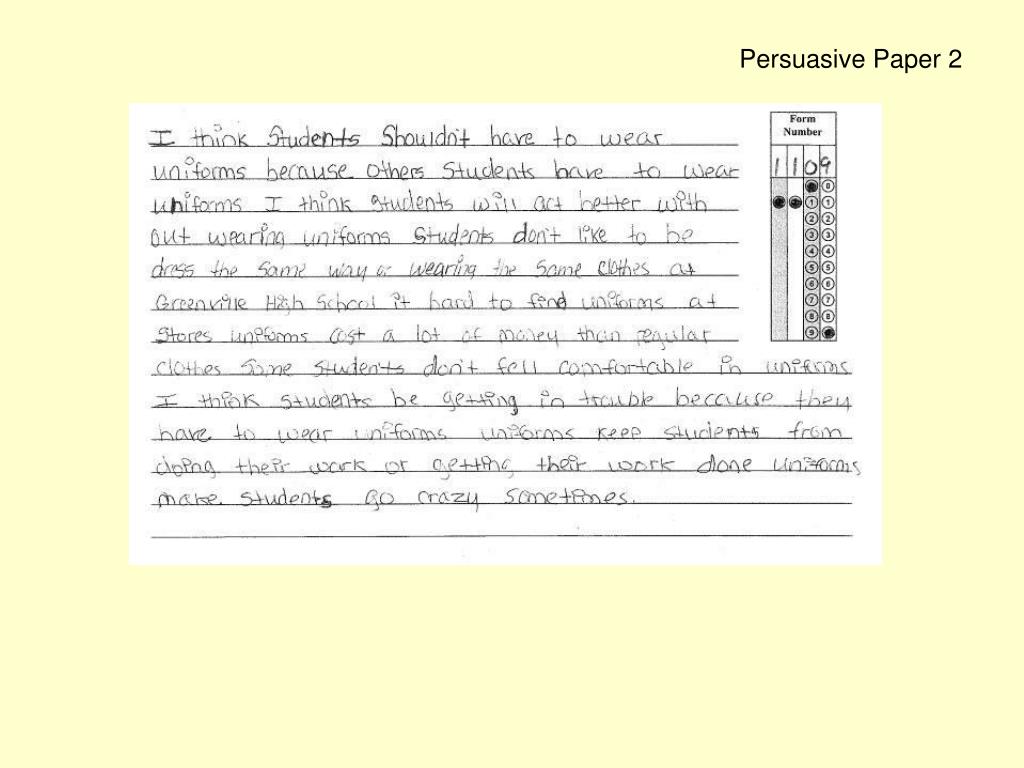 Persuasive Paper 2
I think Students Shouldn't have to wear
uniforms because Others Students have to wear
uniforms I think Students will act better with
out wearing uniforms Students don't like to be
dress the same way or wearing the same clothes at
Greenville High School it hard to find uniforms at
Stores uniforms cost a lot of money than regular
clothes some students don't fell comfortable in uniforms
I think students be getting in trouble because they
have to wear uniforms uniforms keep students from
doing their work or getting their work done uniforms
make students go crazy sometimes.
Form
Number
1109
0 0
1 1
2 2
3 3
4 4
5 5
6 6
7 7
8 8
9